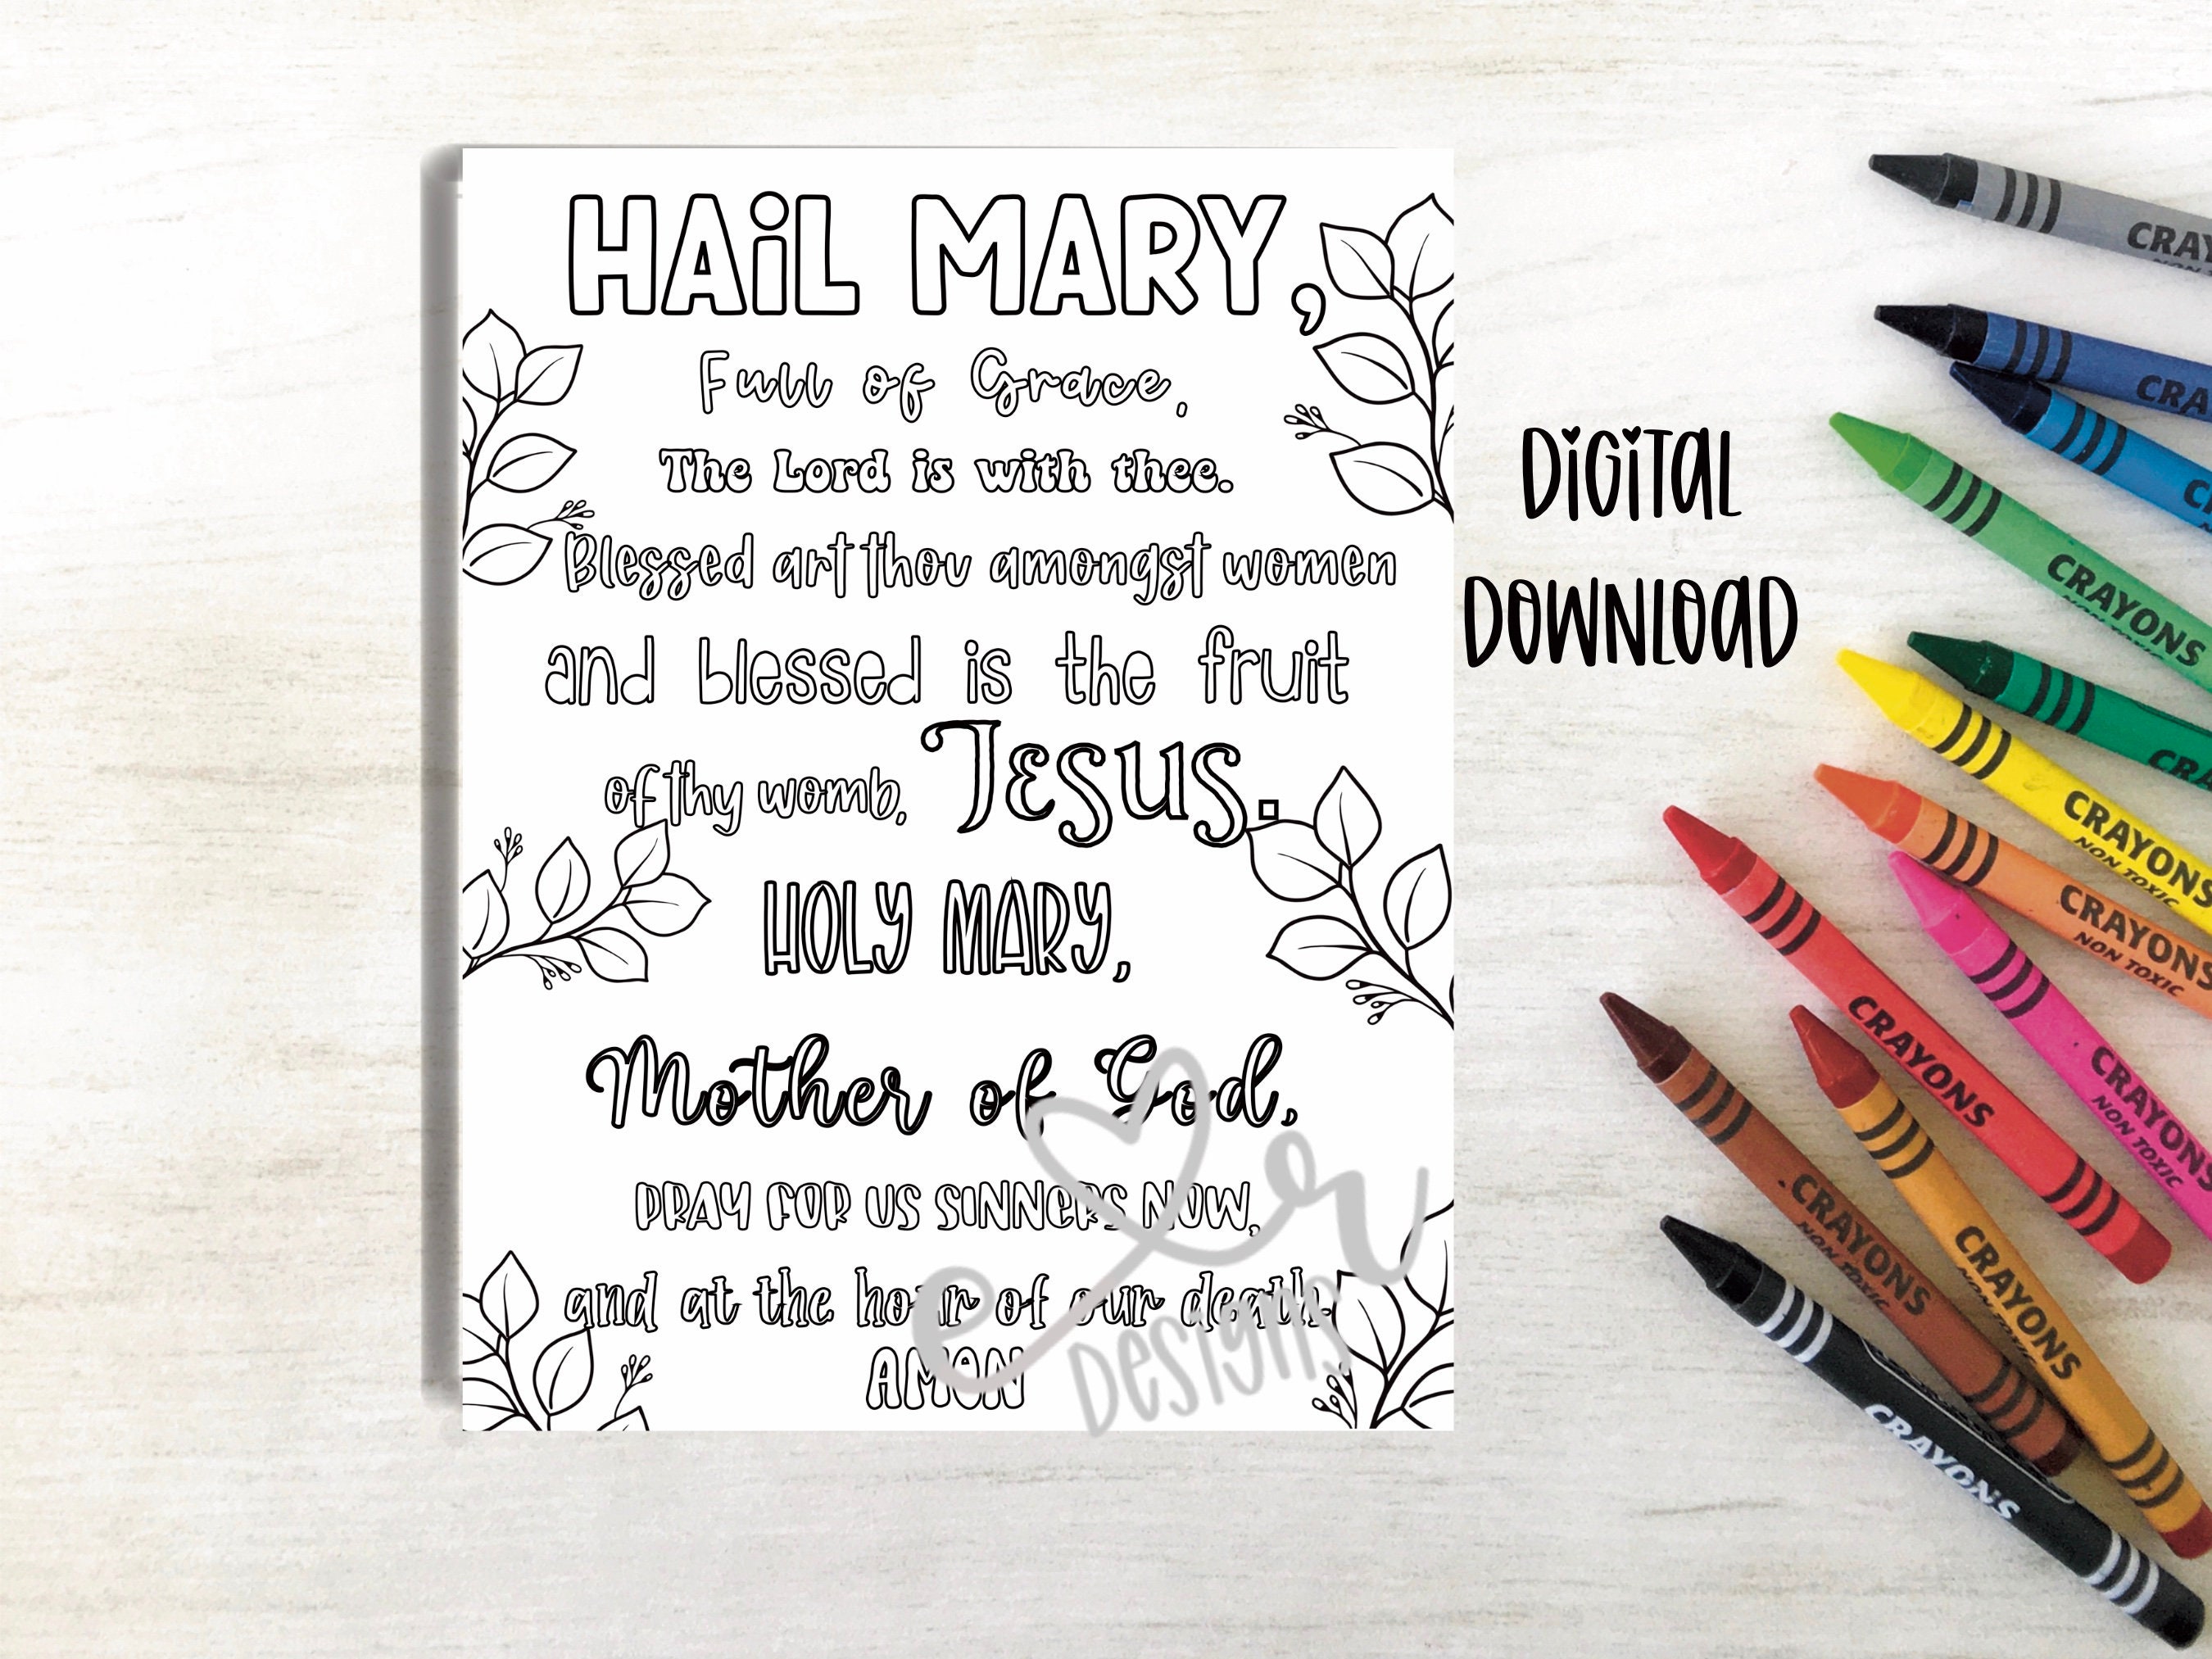 HAiL MARY,
Full of Grace,
The Lord is with thee.
Blessed art thou amongst women
and blessed is the fruit
of thy womb, Jesus.
HOLY MARY,
Mother of God,
PRAY FOR US SINNERS NOW,
and at the hour of our death.
AMEN
er
DESIGNS
DiGiTAL
DOWNLOAD
CRAY
NON T
CRA
C
CRAYONS
CRA
CRAYONS
NON TOXIC
CRAYONS
NON TOXIC
CRAYONS
CRAYONS
NON TOXIC
CRAYONS
NON TOXIC
CRAYONS
CRAYONS